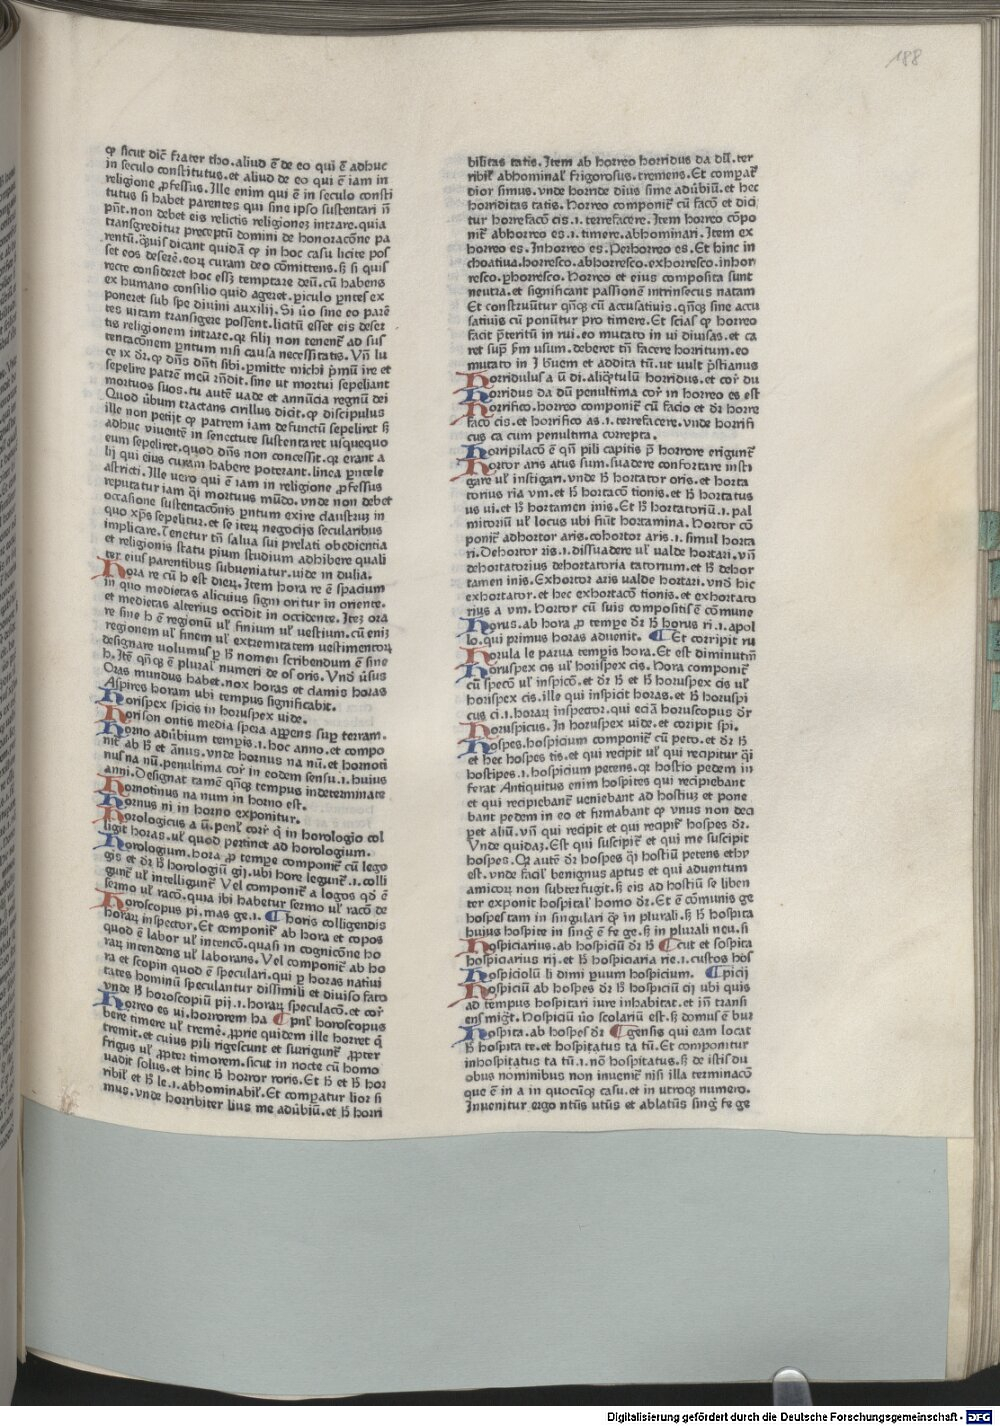 188
ꝙ ſicut dic̄ frater tho.aliud ē de eo qui ē adhuc
in ſeculo conſtitutus.et aliud de eo qui ē iam in
religione ꝓfeſſus.Ille enim qui ē in ſeculo conſti
tutus ſi habet parentes qui ſine ipſo ſuſtentari n̄
pn̄t.non debet eis relictis religionez intrare.quia
tranſgreditur preceptū domini de honoracōne pa
rentū.Quis dicant quidā ꝙ in hoc caſu licite poſ
ſet eos deſerē.eoꝝ curam deo cōmittens.ſꝫ ſi quis
recte conſideret hoc eſſꝫ temptare deū.cū habens
ex humano conſilio quid ageret.ꝑiculo pn̄tes ex
poneret ſub ſpe diuini auxilij.Si ūo ſine eo parē
tes uitam tranſigere poſſent.licitū eſſet eis deſer
tis religionem intrare.qꝛ filij non tenent᷑ ad ſuſ
tentacōnem pn̄tum niſi cauſa neceſſitatis.Vn̄ lu
ce ix dꝛ.ꝙ dn̄s dn̄ti ſibi.ꝑmitte michi pͥmū ire et
ſepelire patrē meū rn̄dit.ſine ut mortui ſepeliant
mortuos ſuos.tu autē uade et annūcia regnū dei
Quod ūbum tractans cirillus dicit.ꝙ diſcipulus
ille non petijt ꝙ patrem iam defunctū ſepeliret ſꝫ
adhuc viuentē in ſenectute ſuſtentaret uſquequo
eum ſepeliret.quod dn̄s non conceſſit.qꝛ erant a
lij qui eius curam habere poterant.linea pn̄tele
aſtricti.Ille uero qui ē iam in religione ꝓfeſſus
reputatur iam qͥi mortuus mūdo.vnde non debet
occaſione ſuſtentacōnis pn̄tum exire clauſtruꝫ in
quo xp̄s ſepelitur.et ſe iteꝝ negocijs ſecularibus
implicare.Tenetur tn̄ ſalua ſui prelati obediencia
et religionis ſtatu pium ſtudium adhibere quali
ter eius parentibus ſubueniatur.uide in dulia.
Hora re cū h eſt dieꝝ.Item hora re ē ſpacium
in quo medietas alicuius ſigni oritur in oriente.
et medietas alterius occidit in occidente.Iteꝫ ora
re ſine h ē regionū ul᷑ finium ul᷑ ueſtium.cū eniꝫ
regionem ul᷑ finem ul᷑ extremitatem ueſtimentoꝝ
deſignare uolumus ꝑ hͦ nomen ſcribendum ē ſine
h.Itē qn̄qꝫ ē plural᷑ numeri de os oris.Vnd̄ ūſus
Oras mundus habet.nox horas et clamis horas
Aſpires horam ubi tempus ſignificabit.
Horiſpex ſpicis in horuſpex uide.
Horiſon ontis media ſpera apꝑens ſuꝑ terram.
Horno adūbium tempis.i.hoc anno.et compo
nit᷑ ab hͦ et ānus.vnde hornus na nū.et hornoti
nus na nū.penultima cor᷑ in eodem ſenſu.i.huius
anni.Deſignat tamē qn̄qꝫ tempus indeterminate
Hornotinus na num in horno eſt.
Hornus ni in horno exponitur.
Horologicus a ū.penl᷑ corr᷑ qͥ in horologio col
ligit horas.ul᷑ quod pertinet ad horologium.
Horologium.hora ꝙ tempe componit᷑ cū lego
gis et dꝛ hͦ horologiū gij.ubi hore legunt᷑.i.colli
gunt᷑ ul᷑ intelligunt᷑ Vel componit᷑ a logos qd̄ ē
ſermo ul᷑ racō.quia ibi habetur ſermo ul᷑ racō de
Horoſcopus pi.mas ge.i. ¶ horis colligendis
horaꝝ inſpector.Et componit᷑ ab hora et copos
quod ē labor ul᷑ intencō.quaſi in cognicōne ho
raꝝ intendens ul᷑ laborans.Vel componit᷑ ab ho
ra et ſcopin quod ē ſpeculari.qui ꝑ horas natiui
tates hominū ſpeculantur diſſimili et diuiſo fato
vnde hͦ horoſcopiū pij.i.horaꝝ ſpeculacō.et cor᷑
Horreo es ui.horrorem ha ¶ pnl᷑ horoſcopus
bere timere ul᷑ tremē.ꝓprie quidem ille horret qͥ
tremit.et cuius pili rigeſcunt et ſurrigunt᷑ ꝓpter
frigus ul᷑ ꝓpter timorem.ſicut in nocte cū homo
uadit ſolus.et hinc hͦ horror roris.Et hͦ et hͦ hor
ribil᷑ et hͦ le.i.abhominabil᷑.Et compatur lior ſi
mus.vnde horribiter lius me adūbiū.et hͦ horri
bilitas tatis.Item ab horreo horridus da dū.ter
ribil᷑ abhominal᷑ frigoroſus.tremens.Et compat᷑
dior ſimus.vnde horride dius ſime adūbiū.et hec
horriditas tatis.Horreo componit᷑ cū facō et dici
tur horrefacō cis.i.terrefacere.Item horreo cōpo
nit᷑ abhorreo es.i.timere.abhominari.Item ex
horreo es.Inhorreo es.Perhorreo es.Et hinc in
choatiua.horreſco.abhorreſco.exhorreſco.inhor
reſco.ꝑhorreſco.Horreo et eius compoſita ſunt
neutra.et ſignificant paſſionē intrinſecus natam
Et conſtruūtur qn̄qꝫ cū accuſatiuis.qn̄qꝫ ſine accu
ſatiuis cū ponūtur pro timere.Et ſcias ꝙ horreo
facit p̄teritū in rui.eo mutato in ui diuiſas.et ca
ret ſuꝑ ẜm uſum.deberet tn̄ facere horritum.eo
mutato in I bͥuem et addita tū.ut uult pͥſtianus
Horridulus a ū di.aliqͣtulū horridus.et cor᷑ du
Horridus da dū penultima cor᷑ in horreo es eſt
Horrifico.horreo componit᷑ cū facio et dꝛ horre
facō cis.et horrifico as.i.terrefacere.vnde horrifi
cus ca cum penultima correpta.
Horripilacō ē qn̄ pili capitis p̄ horrore erigunt᷑
Hortor aris atus ſum.ſuadere confortare inſti
gare ul᷑ inſtigari.vnde hͦ hortator oris.et horta
torius ria vm.et hͦ hortacō tionis.et hͦ hortatus
us ui.et hͦ hortamen inis.Et hͦ hortatoriū.i.pal
mitoriū ul᷑ locus ubi fiūt hortamina.Hortor cō
ponit᷑ adhortor aris.cohortor aris.i.ſimul horta
ri.Dehortor ris.i.diſſuadere ul᷑ ualde hortari.vn̄
dehortatorius dehortatoria tatorium.et hͦ dehor
tamen inis.Exhortor aris ualde hortari.vnd̄ hic
exhortator.et hec exhortacō tionis.et exhortato
rius a vm.Hortor cū ſuis compoſitis ē cōmune
Horus.ab hora ꝓ tempe dꝛ hͦ horus ri.i.apol
lo.qui primus horas aduenit. ¶ Et corripit ru
Horula le parua tempis hora.Et eſt diminutm̄
Horuſpex cis ul᷑ horiſpex cis.Hora componit᷑
cū ſpecō ul᷑ inſpicō.et dꝛ hͦ et hͦ horuſpex cis ul᷑
horiſpex cis.ille qui inſpicit horas.et hͦ horuſpi
cus ci.i.horaꝝ inſpector.qui eciā horuſcopus dꝛ
Horuſpicus.In horuſpex uide.et coripit ſpi.
Hoſpes.hoſpicium componit᷑ cū peto.et dꝛ hͦ
et hec hoſpes tis.et qui recipit ul᷑ qui recipitur qͥi
hoſtipes.i.hoſpicium petens.qꝛ hoſtio pedem in
ferat Antiquitus enim hoſpites qui recipiebant
et qui recipiebant᷑ ueniebant ad hoſtiuꝫ et pone
bant pedem in eo et firmabant ꝙ vnus non deci
ꝑet aliū.vn̄ qui recipit et qui recipit᷑ hoſpes dꝛ.
Vnde quidaꝫ.Eſt qui ſuſcipit᷑ et qui me ſuſcipit
hoſpes.Qꝛ autē dꝛ hoſpes qͥi hoſtiū petens ethy
eſt.vnde facil᷑ benignus aptus et qui aduentum
amicoꝝ non ſubterfugit.ſꝫ eis ad hoſtiū ſe liben
ter exponit hoſpital᷑ homo dꝛ.Et ē cōmunis ge
hoſpes tam in ſingulari qͣꝫ in plurali.ſꝫ hͦ hoſpita
huius hoſpite in ſingͥ ē fe ge.ſꝫ in plurali neu.ſi
Hoſpiciarius.ab hoſpiciū dꝛ hͦ ¶ cut et ſoſpita
hoſpiciarius rij.et hͦ hoſpiciaria rie.i.cuſtos hoſ
Hoſpiciolū li dimi ꝑuum hoſpicium. ¶ picij
Hoſpiciū ab hoſpes dꝛ hͦ hoſpiciū cij ubi quis
ad tempus hoſpitari iure inhabitat.et in̄ tranſi
ens migͣt.Hoſpiciū ūo ſcolariū eſt.ſꝫ domus ē bur
Hoſpita.ab hoſpes dꝛ ¶ genſis qui eam locat
hͦ hoſpita te.et hoſpitatus ta tū.Et componitur
inhoſpitatus ta tū.i.nō hoſpitatus.ſꝫ de iſtis du
obus nominibus non inuenit᷑ niſi illa terminacō
que ē in a in quocūqꝫ caſu.et in utroqꝫ numero.
Inuenitur ergo nt̄us ut̄us et ablat̄us ſingͥ fe ge
Digitalisierung gefördert durch die Deutsche Forschungsgemeinschaft - DFG